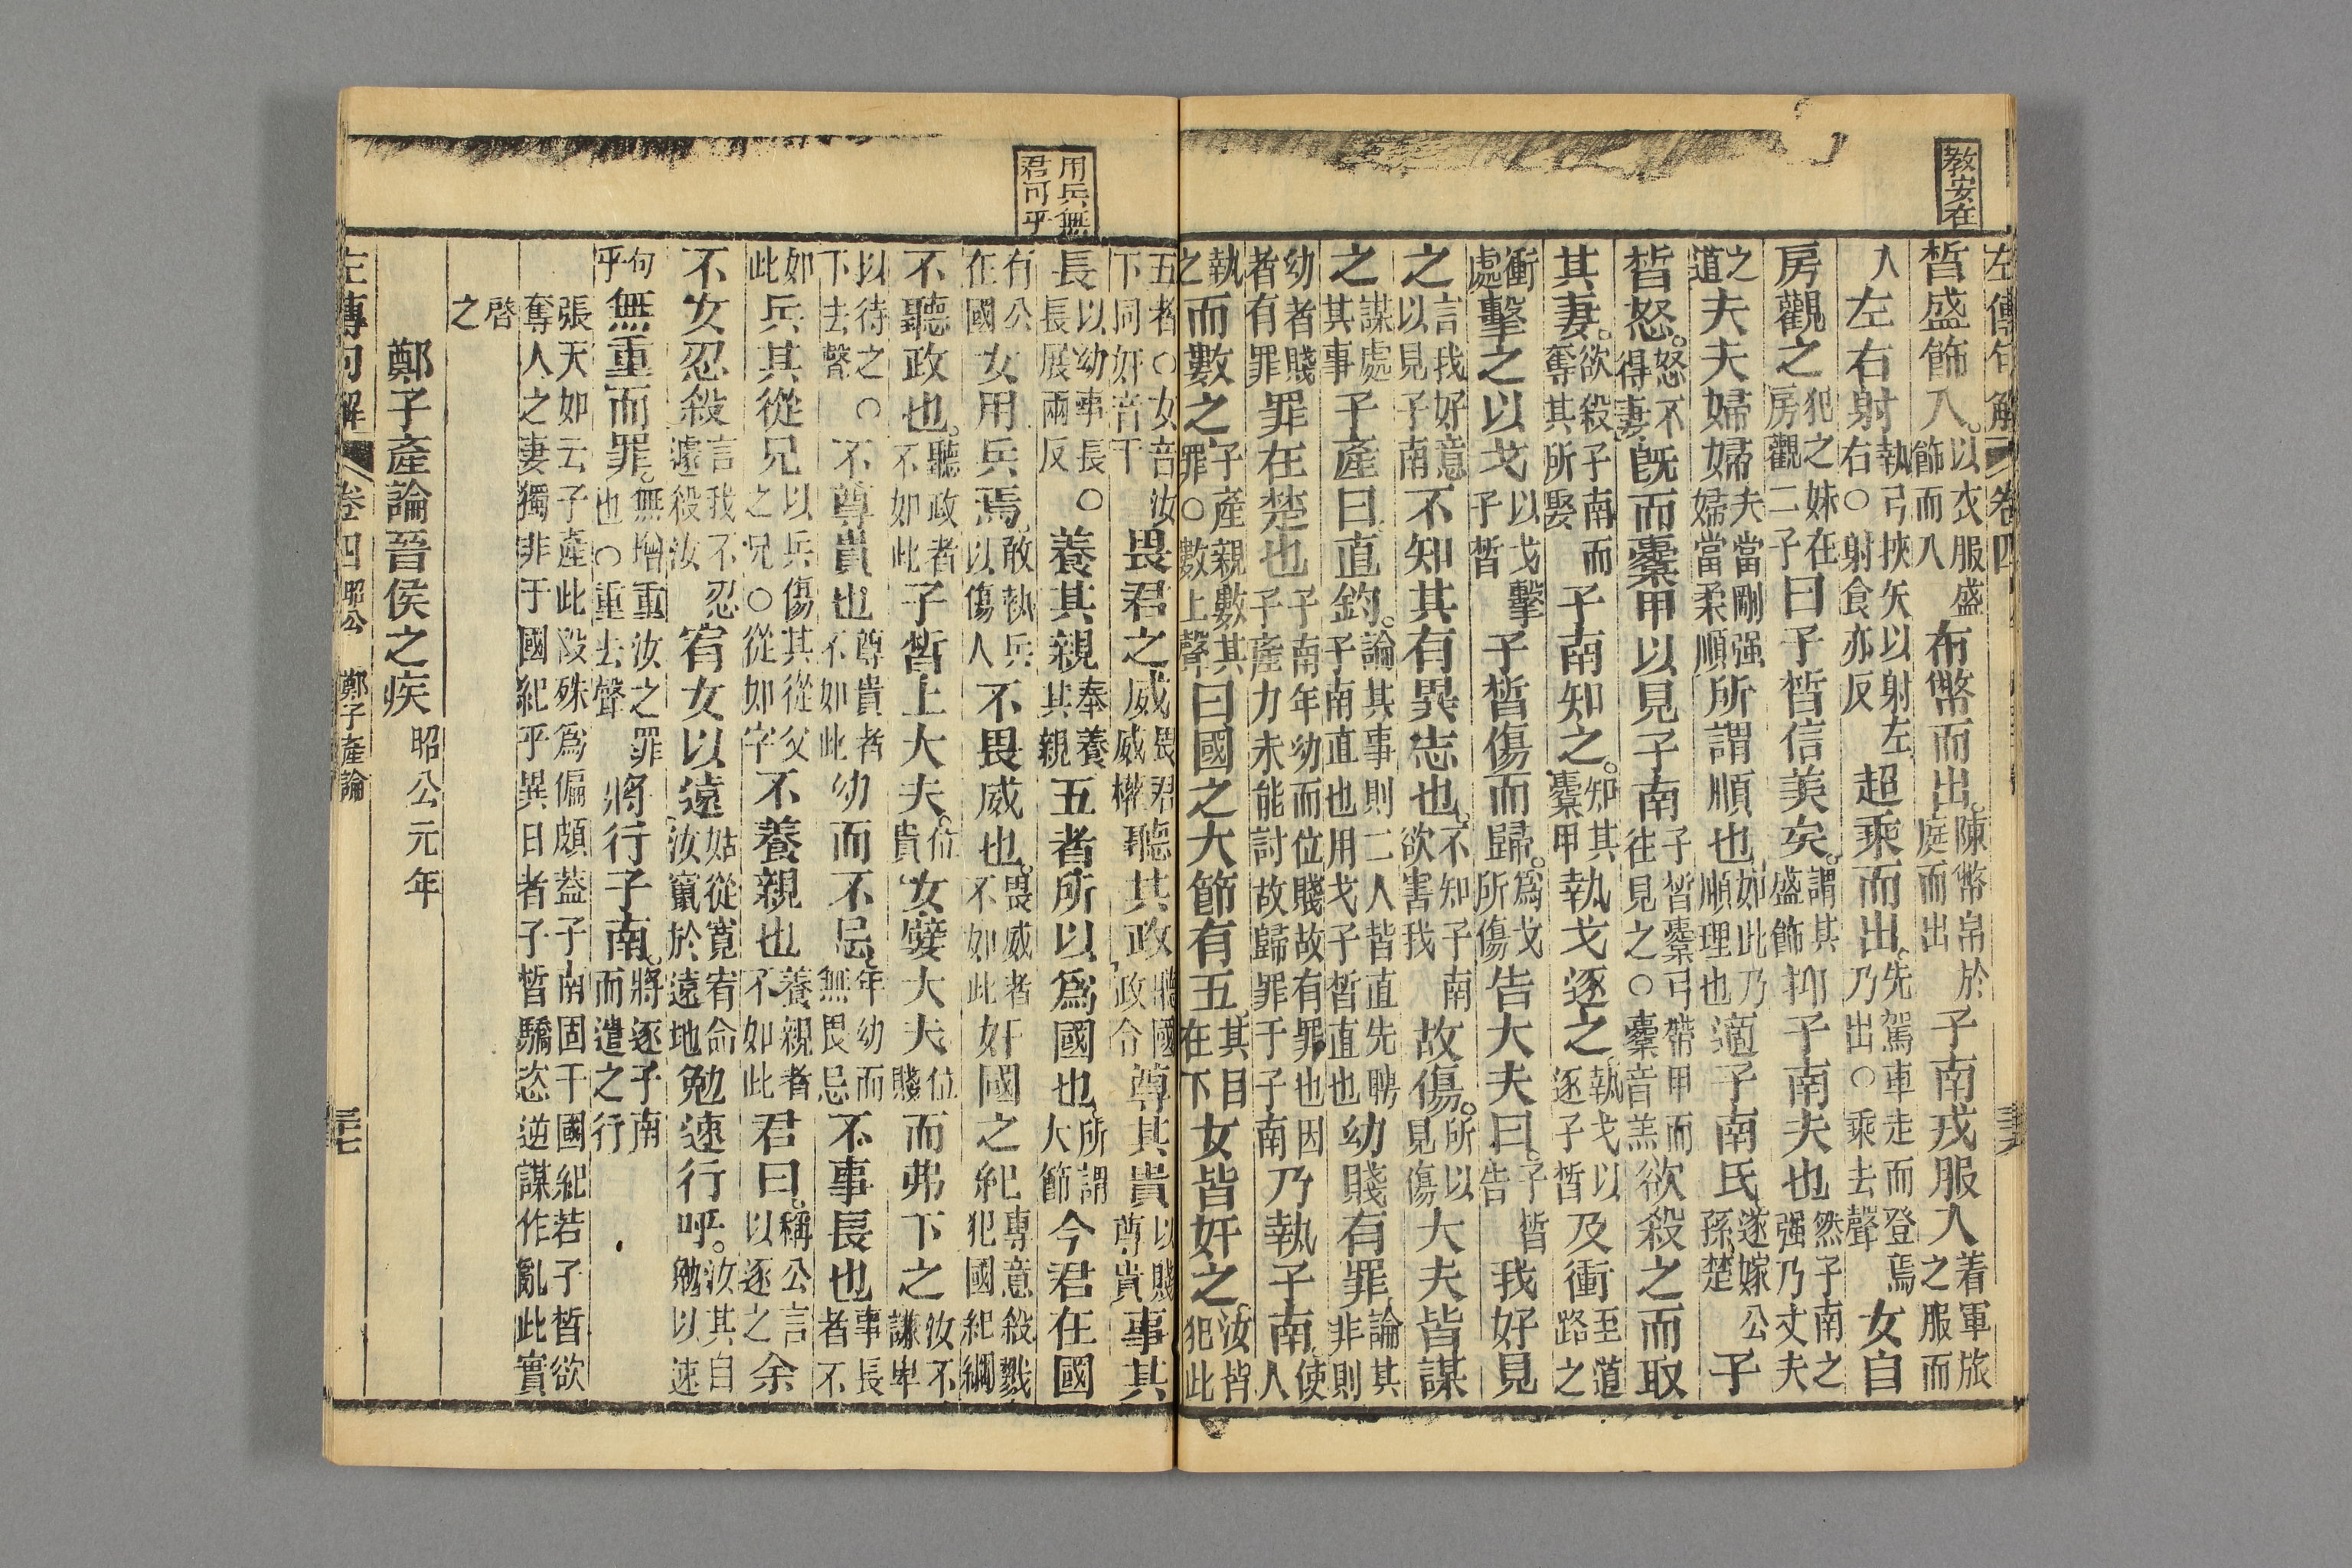 教安在
左傳句解 卷四
晳盛飾入。以衣服盛飾而入布幣而出。陳幣帛於庭而出子南戎服入着軍旅之服而
入左右射執弓挾矢以射左右○射食亦反超乘而出。先駕車走而登焉乃出○乘去聲女自
房觀之犯之妹在房觀二子曰子晳信美矣。謂其盛飾抑子南夫也然子南之强乃丈夫
之道夫夫婦婦夫當剛强婦當柔順所謂順也如此乃順理也適子南氏遂嫁公孫楚子
晳怒。怒不得妻旣而櫜甲以見子南子晳櫜弓帶甲而往見之○櫜音羔欲殺之而取
其妻。欲殺子南而奪其所娶子南知之。知其櫜甲執戈逐之。執戈以逐子晳及衝至道路之
衝處擊之以戈以戈擊子晳子晳傷而歸。爲戈所傷告大夫曰子晳告我好見
之言我好意以見子南不知其有異志也不知子南欲害我故傷。所以見傷大夫皆謀
之謀處其事子產曰直鈞。論其事則二人皆直先聘子南直也用戈子晳直也幼賤有罪論其非則
幼者賤者有罪罪在楚也子南年幼而位賤故有罪也因子產力未能討故歸罪于子南乃執子南使人
執之而數之子產親數其罪○數上聲曰國之大節有五其目在下女皆奸之汝皆犯此
用兵無君可乎
五者○女音汝下同奸音干畏君之威畏君威權聽其政聽國政令尊其貴以賤尊貴事其
長以幼事長○長展兩反養其親奉養其親五者所以爲國也所謂大節今君在國
有公在國女用兵焉敢執兵以傷人不畏威也。畏威者不如此奸國之紀專意殺戮犯國紀綱
不聽政也。聽政者不如此子晳上大夫。位貴女嬖大夫位賤而弗下之汝不謙卑
以待之○下去聲不尊貴也尊貴者不如此幼而不忌年幼而無畏忌不事長也事長者不
如此兵其從兄以兵傷其從父之兄○從如字不養親也養親者不如此君曰。稱公言以逐之余
不女忍殺言我不忍遽殺汝宥女以遠姑從寬宥命汝竄於遠地勉速行乎。汝其自勉以速
句乎無重而罪。無增重汝之罪也○重去聲將行子南。將逐子南而遣之行
張天如云子產此段殊爲偏頗蓋子南固干國紀若子晳欲
奪人之妻獨非于國紀乎異日者子晳驕恣逆謀作亂此實
啓之
鄭子產論晉侯之疾昭公元年
左傳句解 卷四 昭公 鄭子產論 三十七